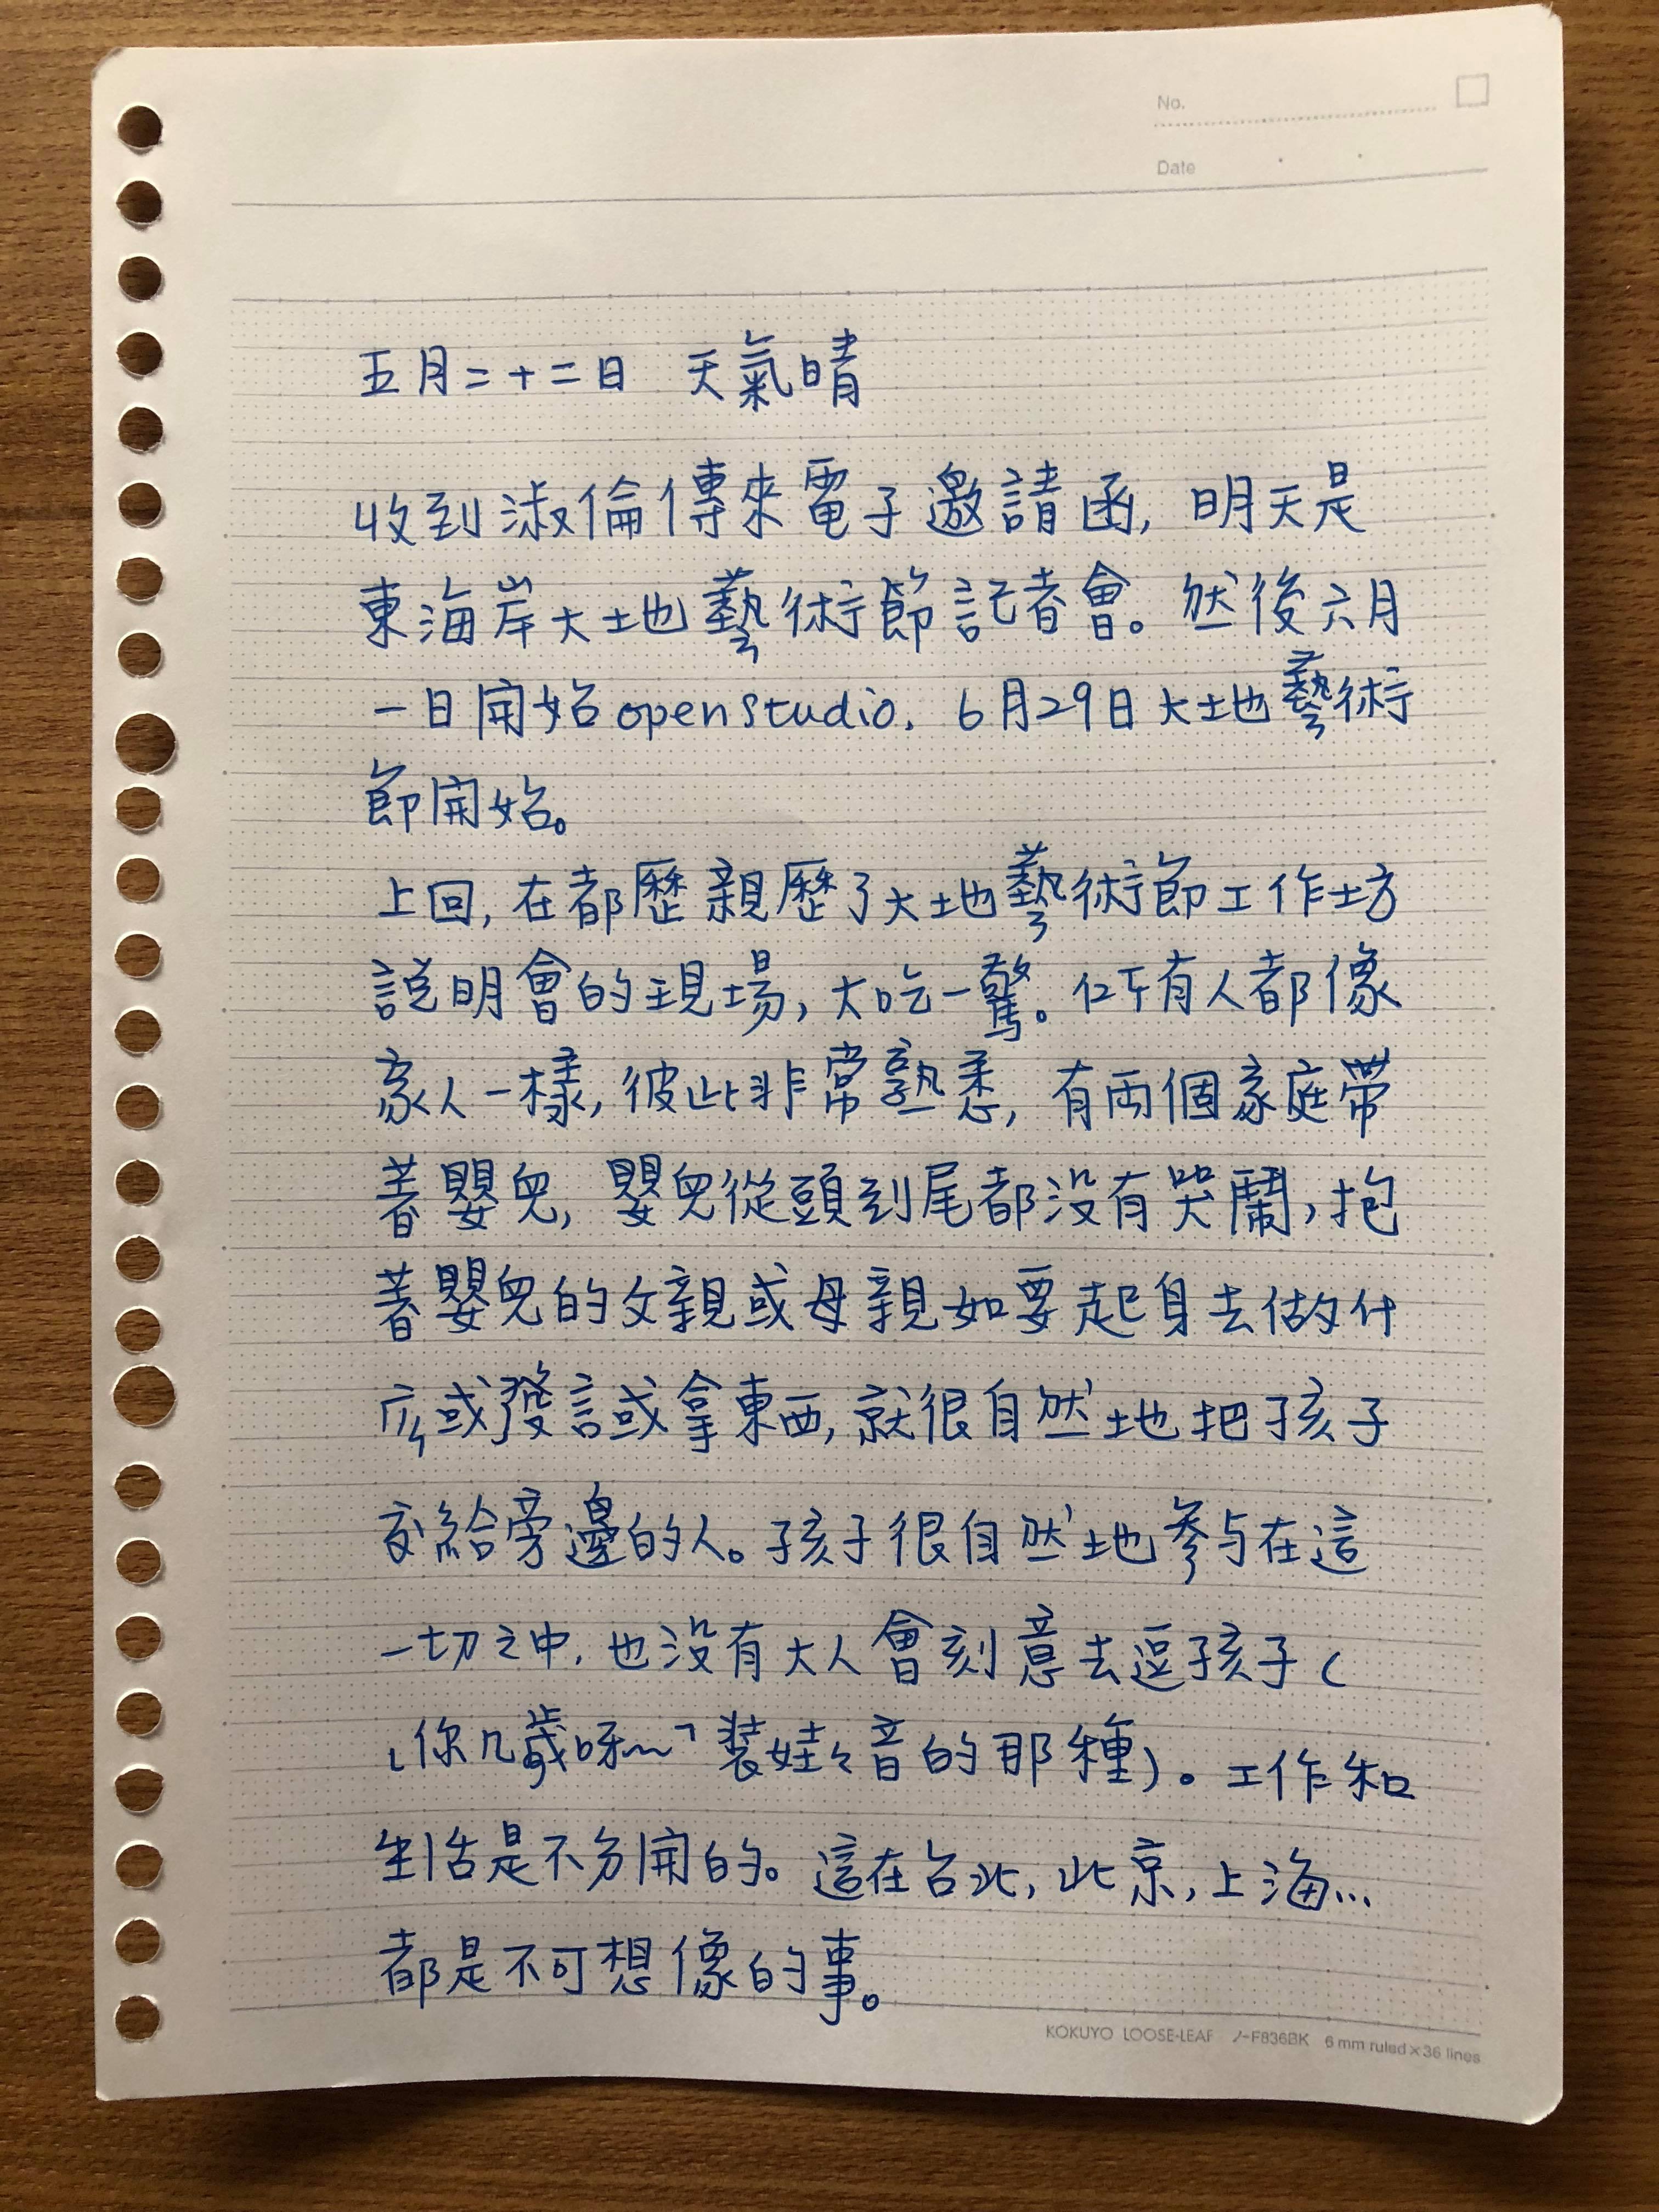 No.
Date
五月二十二日 天氣晴
收到淑倫傳來電子邀請函, 明天是
東海岸大地藝術節記者會。然後六月
一日開始openstudio. 6月29日大地藝術
節開始。
上回, 在都歷親歷了大地藝術節工作坊
說明會的現場, 大吃一驚。所有人都像
家人一樣, 彼此非常熟悉, 有兩個家庭帶
著嬰兒, 嬰兒從頭到尾都没有哭鬧, 抱
著嬰兒的父親或母親如要起身去做什
広或發言或拿東西, 就很自然地把孩子
交給旁邊的人。孩子很自然地參与在這
一切之中. 也没有大人會刻意去逗孩子(
「你几歲呀～」裝娃々音的那種)。工作和
生活是不分開的。這在台北, 北京, 上海...
都是不可想像的事。
KOKUYO LOOSE-LEAF ノ-F836BK 6 mm ruled×36 lines